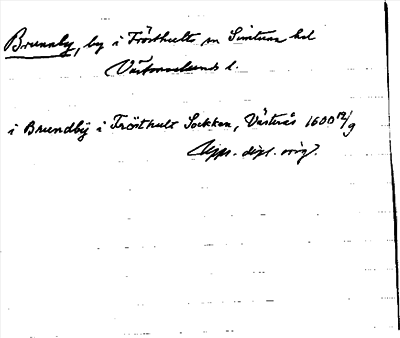 Brunnby, by i Frösthults sn Simtuna hd
Västmanlands l.
i Brundbÿ i Frösthult Sockken, Västerås 1600 12/9
Upps. dipl. orig.